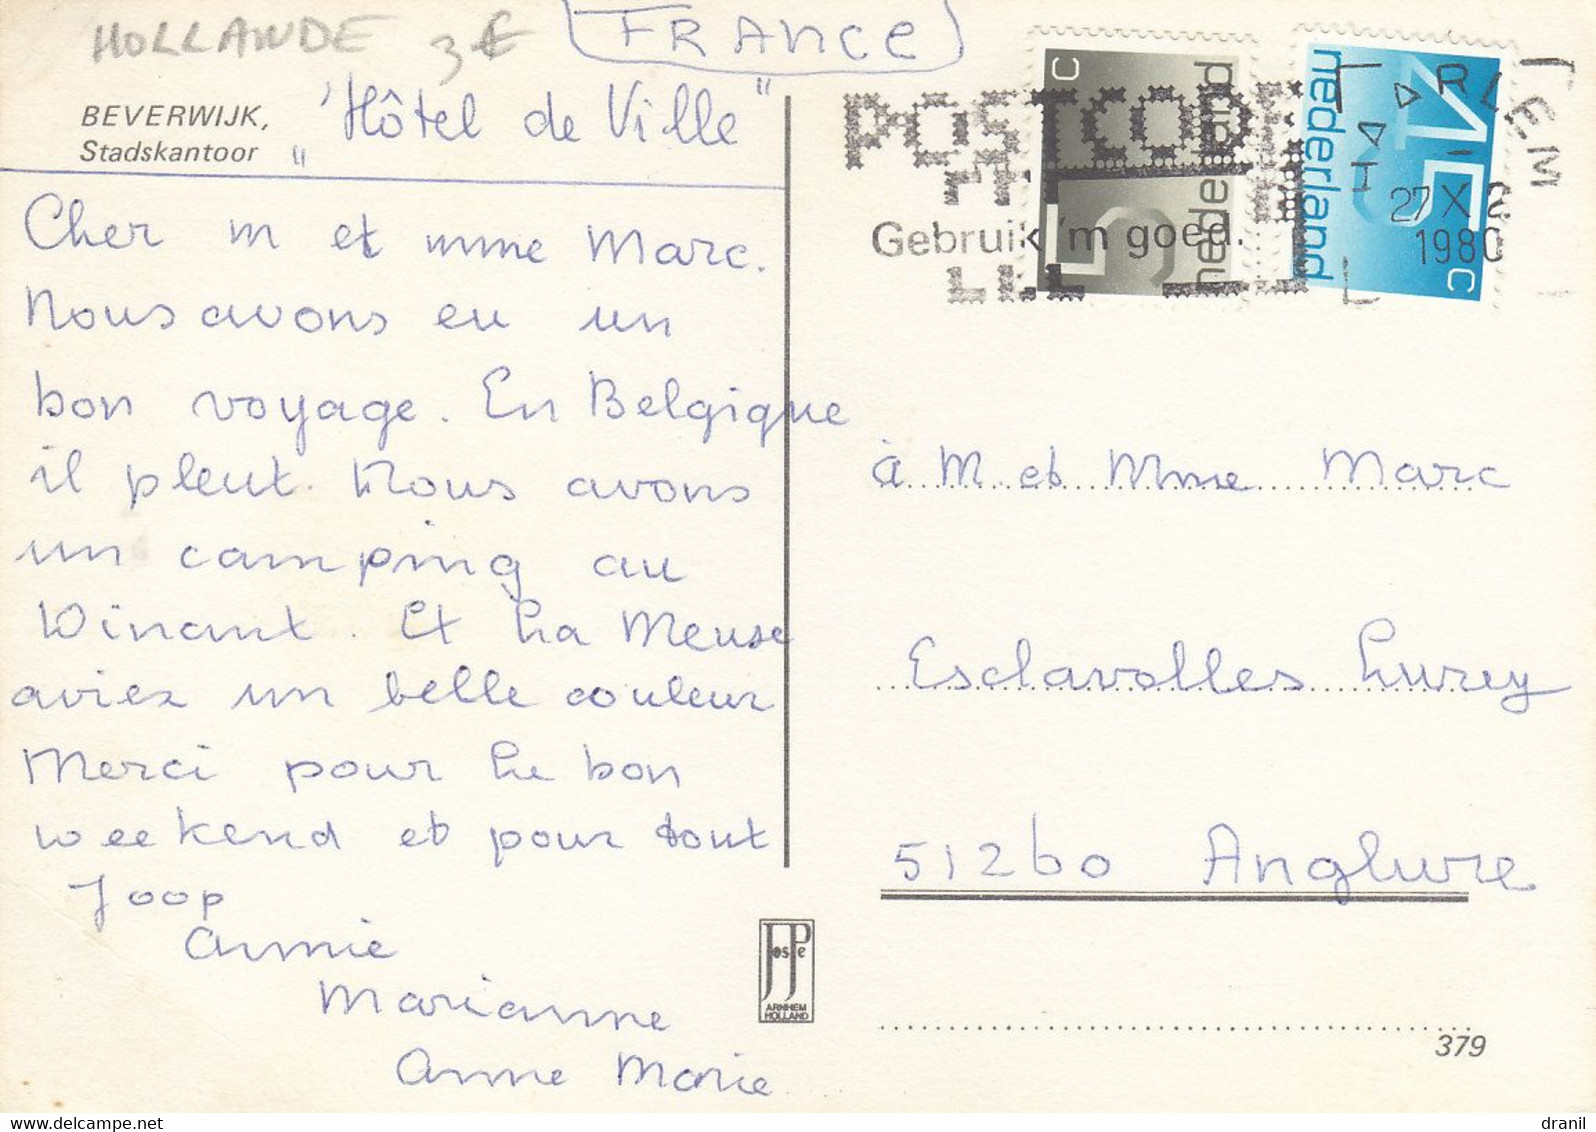 HOLLANDE 3€
FRANCE
BEVERWIJK,
Stadskantoor
"Hôtel de Ville"
Cher m et mme Marc.
Nous avons eu un
bon voyage. En Belgique
il pleut. Nous avons
un camping au
Dinant. Et La Meuse
aviez un belle couleur
Merci pour le bon
weekend et pour tout
Joop
Annie
Marianne
Anne Marie
POSTCODE
Gebruik 'm goed.
nederland
c 5
nederland
45 c
HAARLEM
27 X
1980
à M et Mme Marc
Esclavolles Lurey
51260 Anglure
JosPe
ARNHEM
HOLLAND
379
delcampe.net
dranil